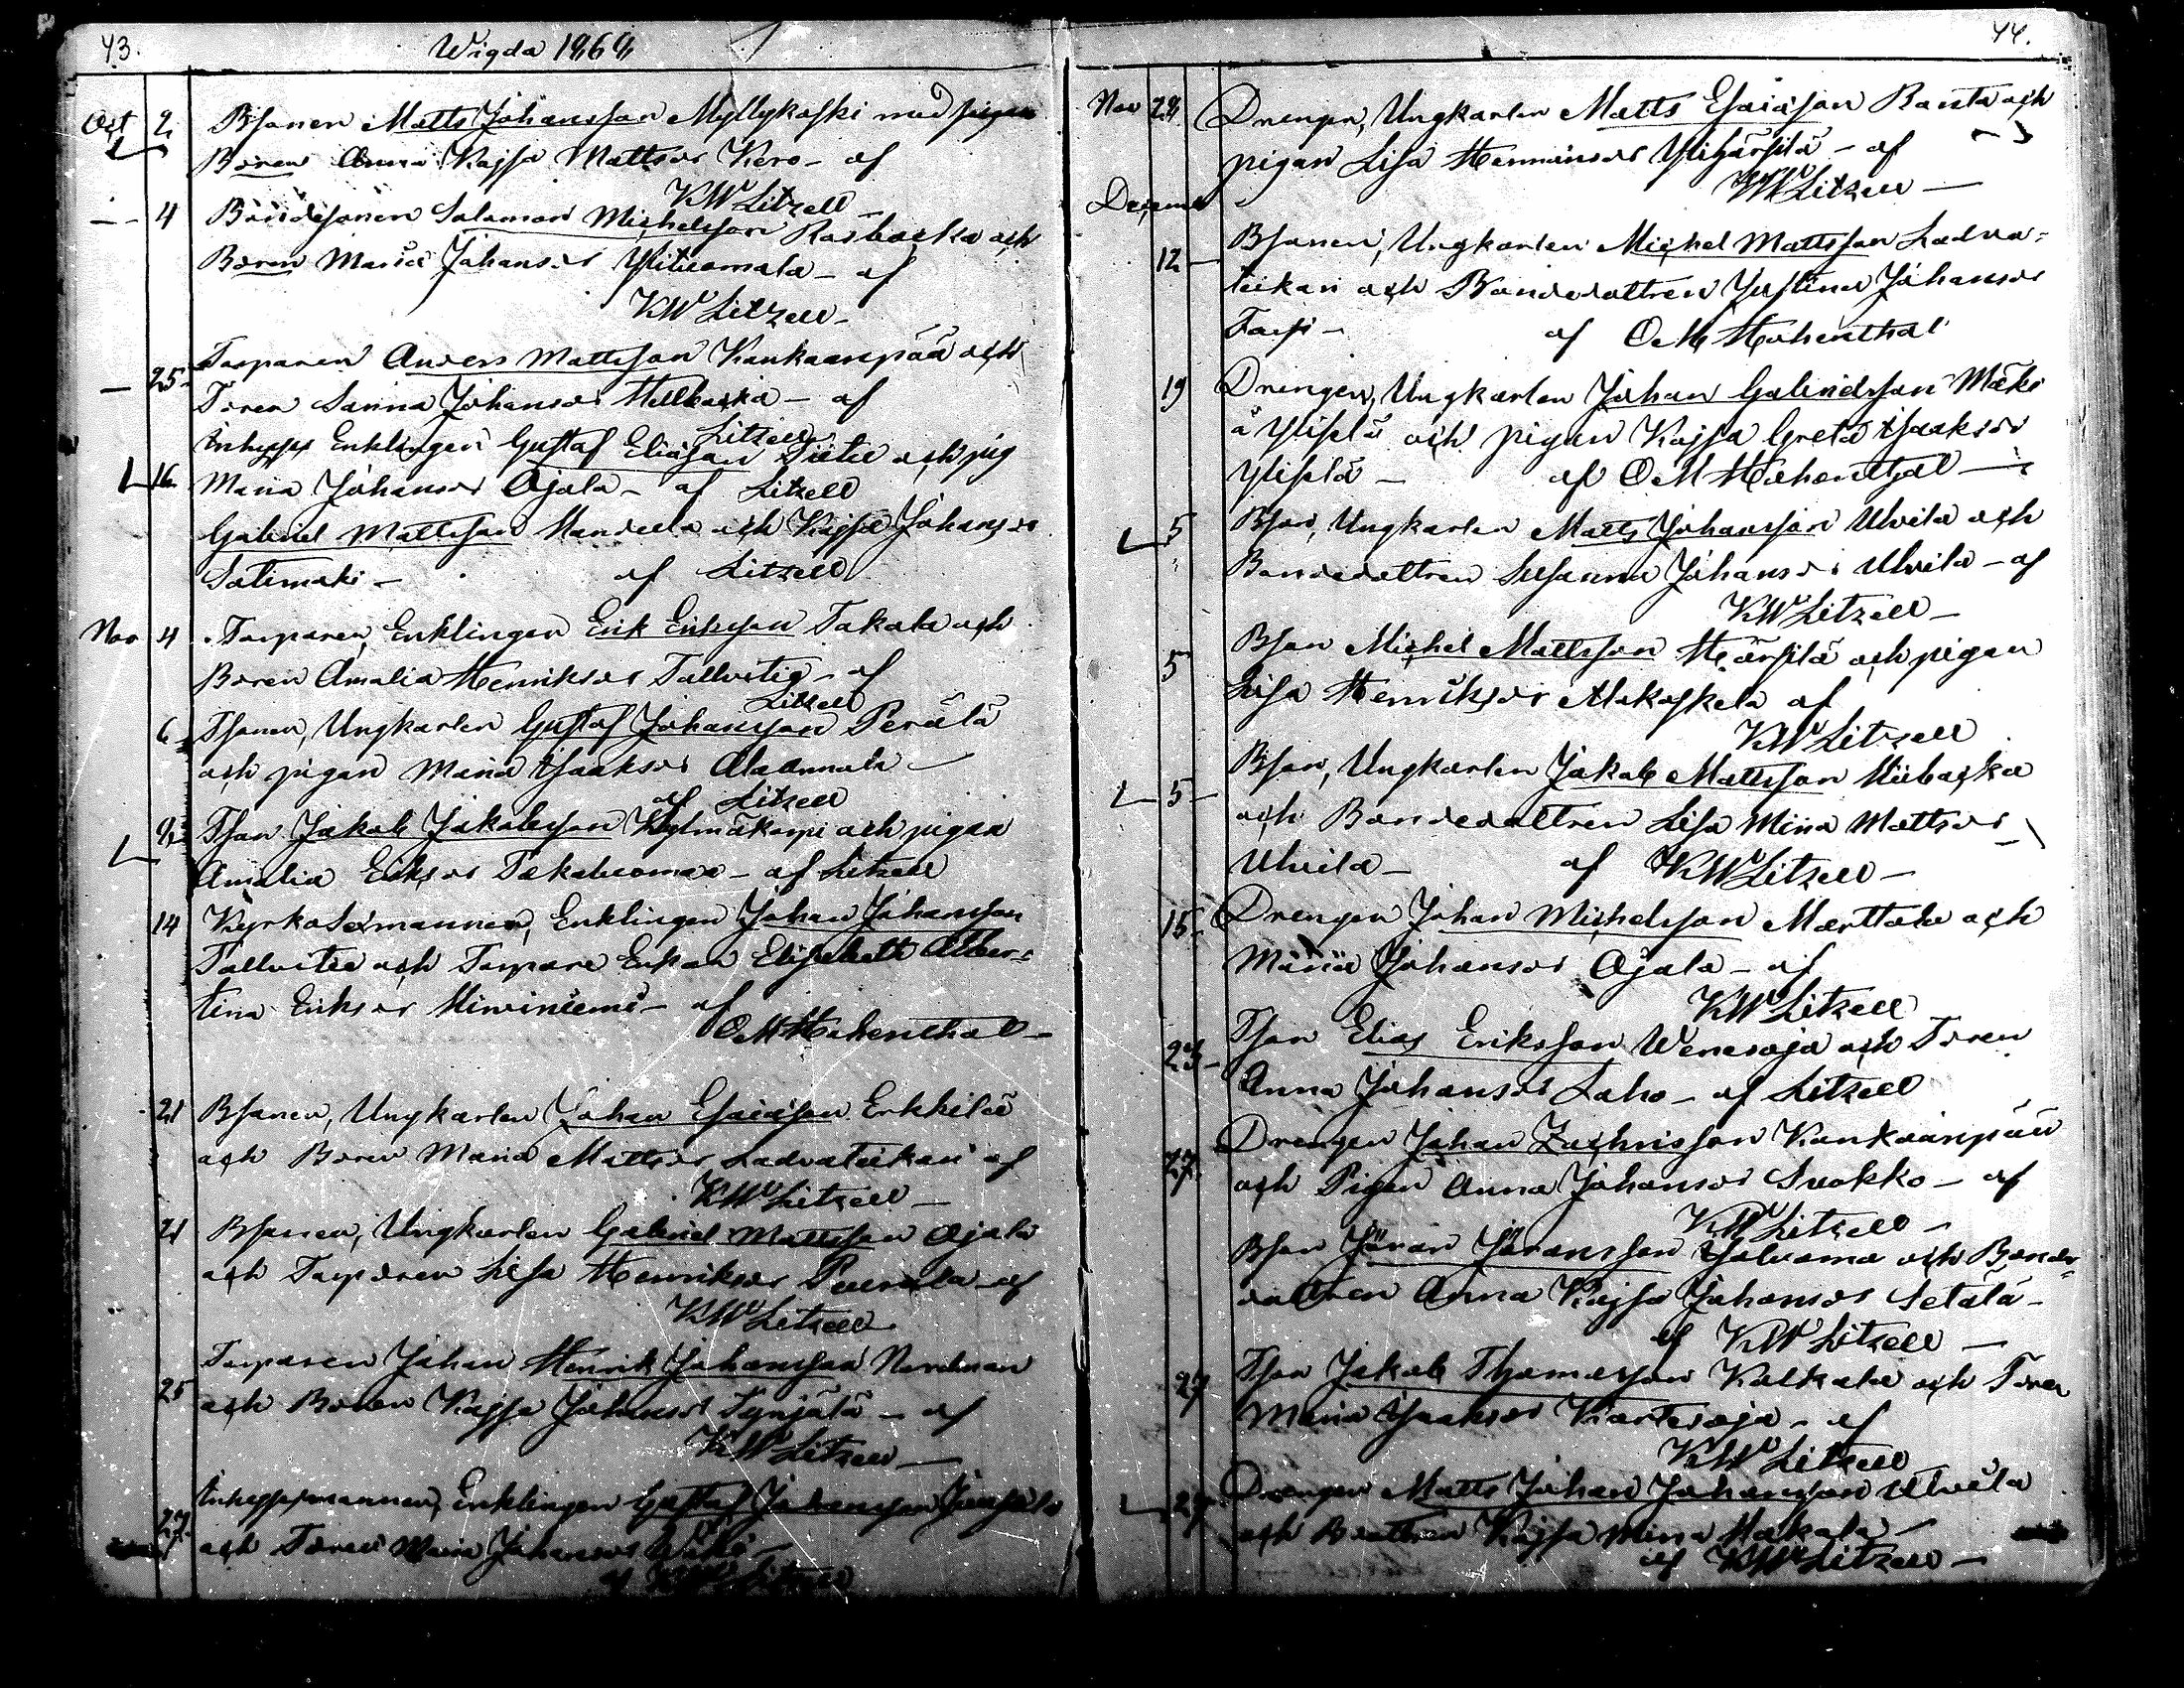 43.
Wigda 1868
Oct 2 Bsonen Matts Johansson Myllykoski med pigan
Boren Anna Kajsa Mattsdr Kero - af
KW Litzell
— 4 Bondesonen Salomon Michelsson Rasbacka och
Boren Maria Johansdr Ylituomala - af
KW Litzell -
— 25 Torparen Anders Mattsson Kankaanpää och
Toren Sanna Johansdr Hellbacka - af
Litzell
16 Inhyses Enklingen Gustaf Eliasson och pig
Maria Johansdr Ojala - af Litzell
Gabriel Mattsson Mandella och Kajsa Johansdr
Salimäki - af Litzell
Nov 4 Torparen, Enklingen Erik Eriksson Takala och
Boren Amalia Henriksdr Tallvitig - af
Litzell
6 Tsonen, Ungkarlen Gustaf Johansson Perälä
och pigan Maria Isaksdr Alaannala -
af Litzell
Tson Jakob Jakobsson Kylmäkorpi och pigan
Amalia Eriksdr Takaluoma - af Litzell
14 Kyrkosexmannen, Enklingen Johan Johansson
Tallvitie och Torpare Enkan Elisabeth Alber=
tina Eriksdr Niiviniemi - af
O M Hohenthal -
21 Bsonen, Ungkarlen Johan Esaiasson Erkkilä
och Boren Maria Mattsdr Ladvateikari af
KW Litzell -
21 Bsonen, Ungkarlen Gabriel Mattsson Ojala
och Torpdren Lisa Henriksdr - af
KW Litzell
25 Torparen Johan Henrik Johansson Nordman
och Boren Kajsa Johansdr Tynjälä - af
KW Litzell -
27 Inhysesmannen, Enklingen Gustaf Johansson
och Toren Maria Johansdr -
af KW Litzell
44.
Nov 28 Drengen, Ungkarlen Matts Esaiasson Ranta och
pigan Lisa Hermansdr Ylihärsilä - af
KW Litzell -
December
12 - Bsonen, Ungkarlen Michel Mattsson Ladva=
teikari och Bondedottren Justina Johansdr
- af O M Hohenthal
19 Drengen, Ungkarlen Johan Gabrielsson Mäki
å Yliselä och pigan Kajsa Greta Isaksdr
Yliselä - af O M Hohenthal -
5 Bson, Ungkarlen Matts Johansson Ulvila och
Bondedottren Susanna Johansdr Ulvila - af
KW Litzell -
5 Bson Michel Mattsson Härsilä och pigan
Lisa Henriksdr Alakoskela af
KW Litzell
5 - Bson, Ungkarlen Jakob Mattsson Niibacka
och Bondedottren Lisa Mina Mattsdr
Ulvila - af KW Litzell -
15 Drengen Johan Michelsson Marttala och
Maria Johansdr Ojala - af
KW Litzell
23 - Tson Elias Eriksson Wenesoja och Toren
Anna Johansdr Laho - af Litzell
27 Drengen Johan Zachrisson Kankaanpää
och Pigan Anna Johansdr Suokko - af
KW Litzell -
Bson Jöran Jöransson Jaluoma och Bonde=
dottren Anna Kajsa Johansdr Setälä -
af KW Litzell -
27 Tson Jakob Thomasson Kalkala och Toren
Maria Isaksdr - af
KW Litzell
27 Drengen Matts Johan Johansson Ulvila
och Bdottren Kajsa Mina Hakala -
af KW Litzell -